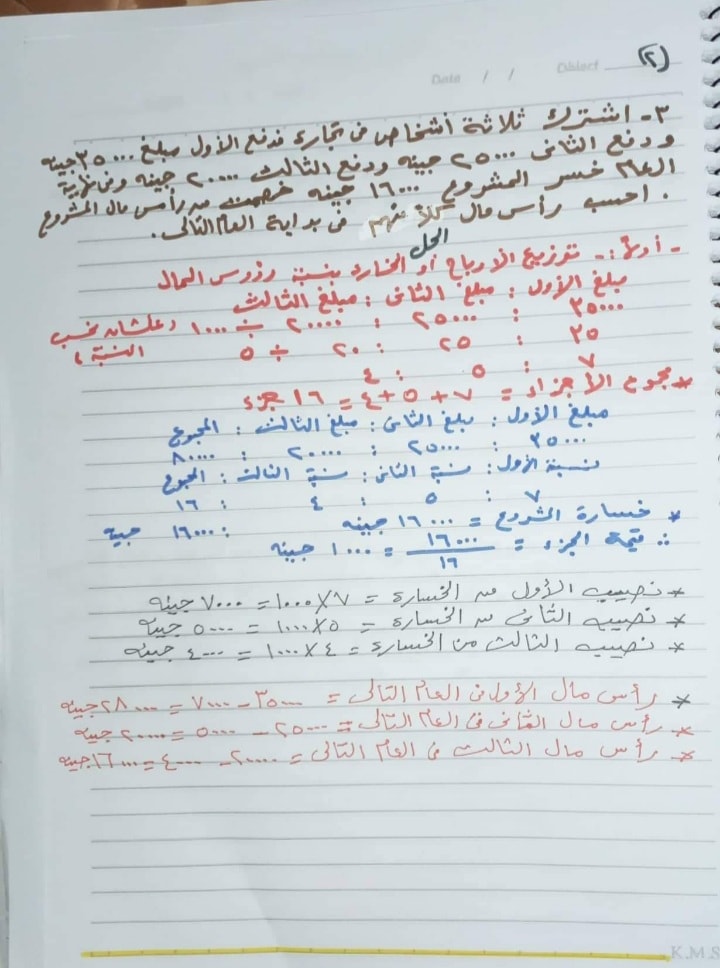 (٢)
Date / / Obiect
٣- اشترك ثلاثة أشخاص فى تجارة فدفع الأول مبلغ ٣٥٠٠٠ جنيه
ودفع الثانى ٢٥٠٠٠ جنيه ودفع الثالث ٢٠٠٠٠ جنيه وفى نهاية
العام خسر المشروع ١٦٠٠٠ جنيه خصمت من رأس مال المشروع
. احسب رأس مال كلاً منهم فى بداية العام التالى.
الحل
- أولاً:- توزيع الأرباح أو الخسارة بنسبة رؤوس المال
مبلغ الأول : مبلغ الثانى : مبلغ الثالث
٣٥٠٠٠ : ٢٥٠٠٠ : ٢٠٠٠٠ ÷ ١٠٠٠ (علشان نحسب
٣٥ : ٢٥ : ٢٠ ÷ ٥ النسبة)
٧ : ٥ : ٤
* مجموع الأجزاء = ٧ + ٥ + ٤ = ١٦ جزء
مبلغ الأول : مبلغ الثانى : مبلغ الثالث : المجموع
٣٥٠٠٠ : ٢٥٠٠٠ : ٢٠٠٠٠ : ٨٠٠٠٠
نسبة الأول : نسبة الثانى : نسبة الثالث : المجموع
٧ : ٥ : ٤ : ١٦
* خسارة المشروع = ١٦٠٠٠ جنيه : ١٦٠٠٠ جنيه
∴ قيمة الجزء = ١٦٠٠٠/١٦ = ١٠٠٠ جنيه
* نصيب الأول من الخسارة = ٧ × ١٠٠٠ = ٧٠٠٠ جنيه
* نصيب الثانى من الخسارة = ٥ × ١٠٠٠ = ٥٠٠٠ جنيه
* نصيب الثالث من الخسارة = ٤ × ١٠٠٠ = ٤٠٠٠ جنيه
* رأس مال الأول فى العام التالى = ٣٥٠٠٠ - ٧٠٠٠ = ٢٨٠٠٠ جنيه
* رأس مال الثانى فى العام التالى = ٢٥٠٠٠ - ٥٠٠٠ = ٢٠٠٠٠ جنيه
* رأس مال الثالث فى العام التالى = ٢٠٠٠٠ - ٤٠٠٠ = ١٦٠٠٠ جنيه
K.M.S